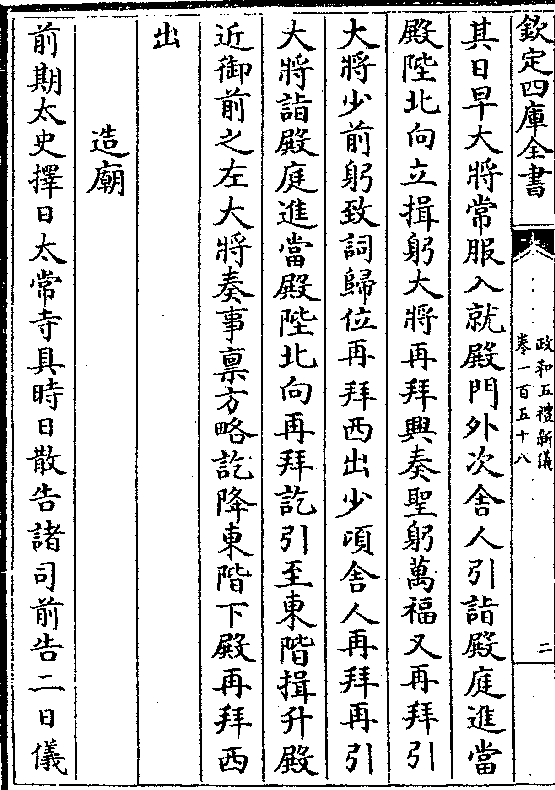 欽定四庫全書
政和五禮新儀
卷一百五十八
二
其日早大將常服入就殿門外次舍人引詣殿庭進當
殿陛北向立揖躬大將再拜興奏聖躬萬福又再拜引
大將少前躬致詞歸位再拜西出少頃舍人再拜再引
大將詣殿庭進當殿陛北向再拜訖引至東階揖升殿
近御前之左大將奏事禀方略訖降東階下殿再拜西
出
造廟
前期太史擇日太常寺具時日散告諸司前告二日儀